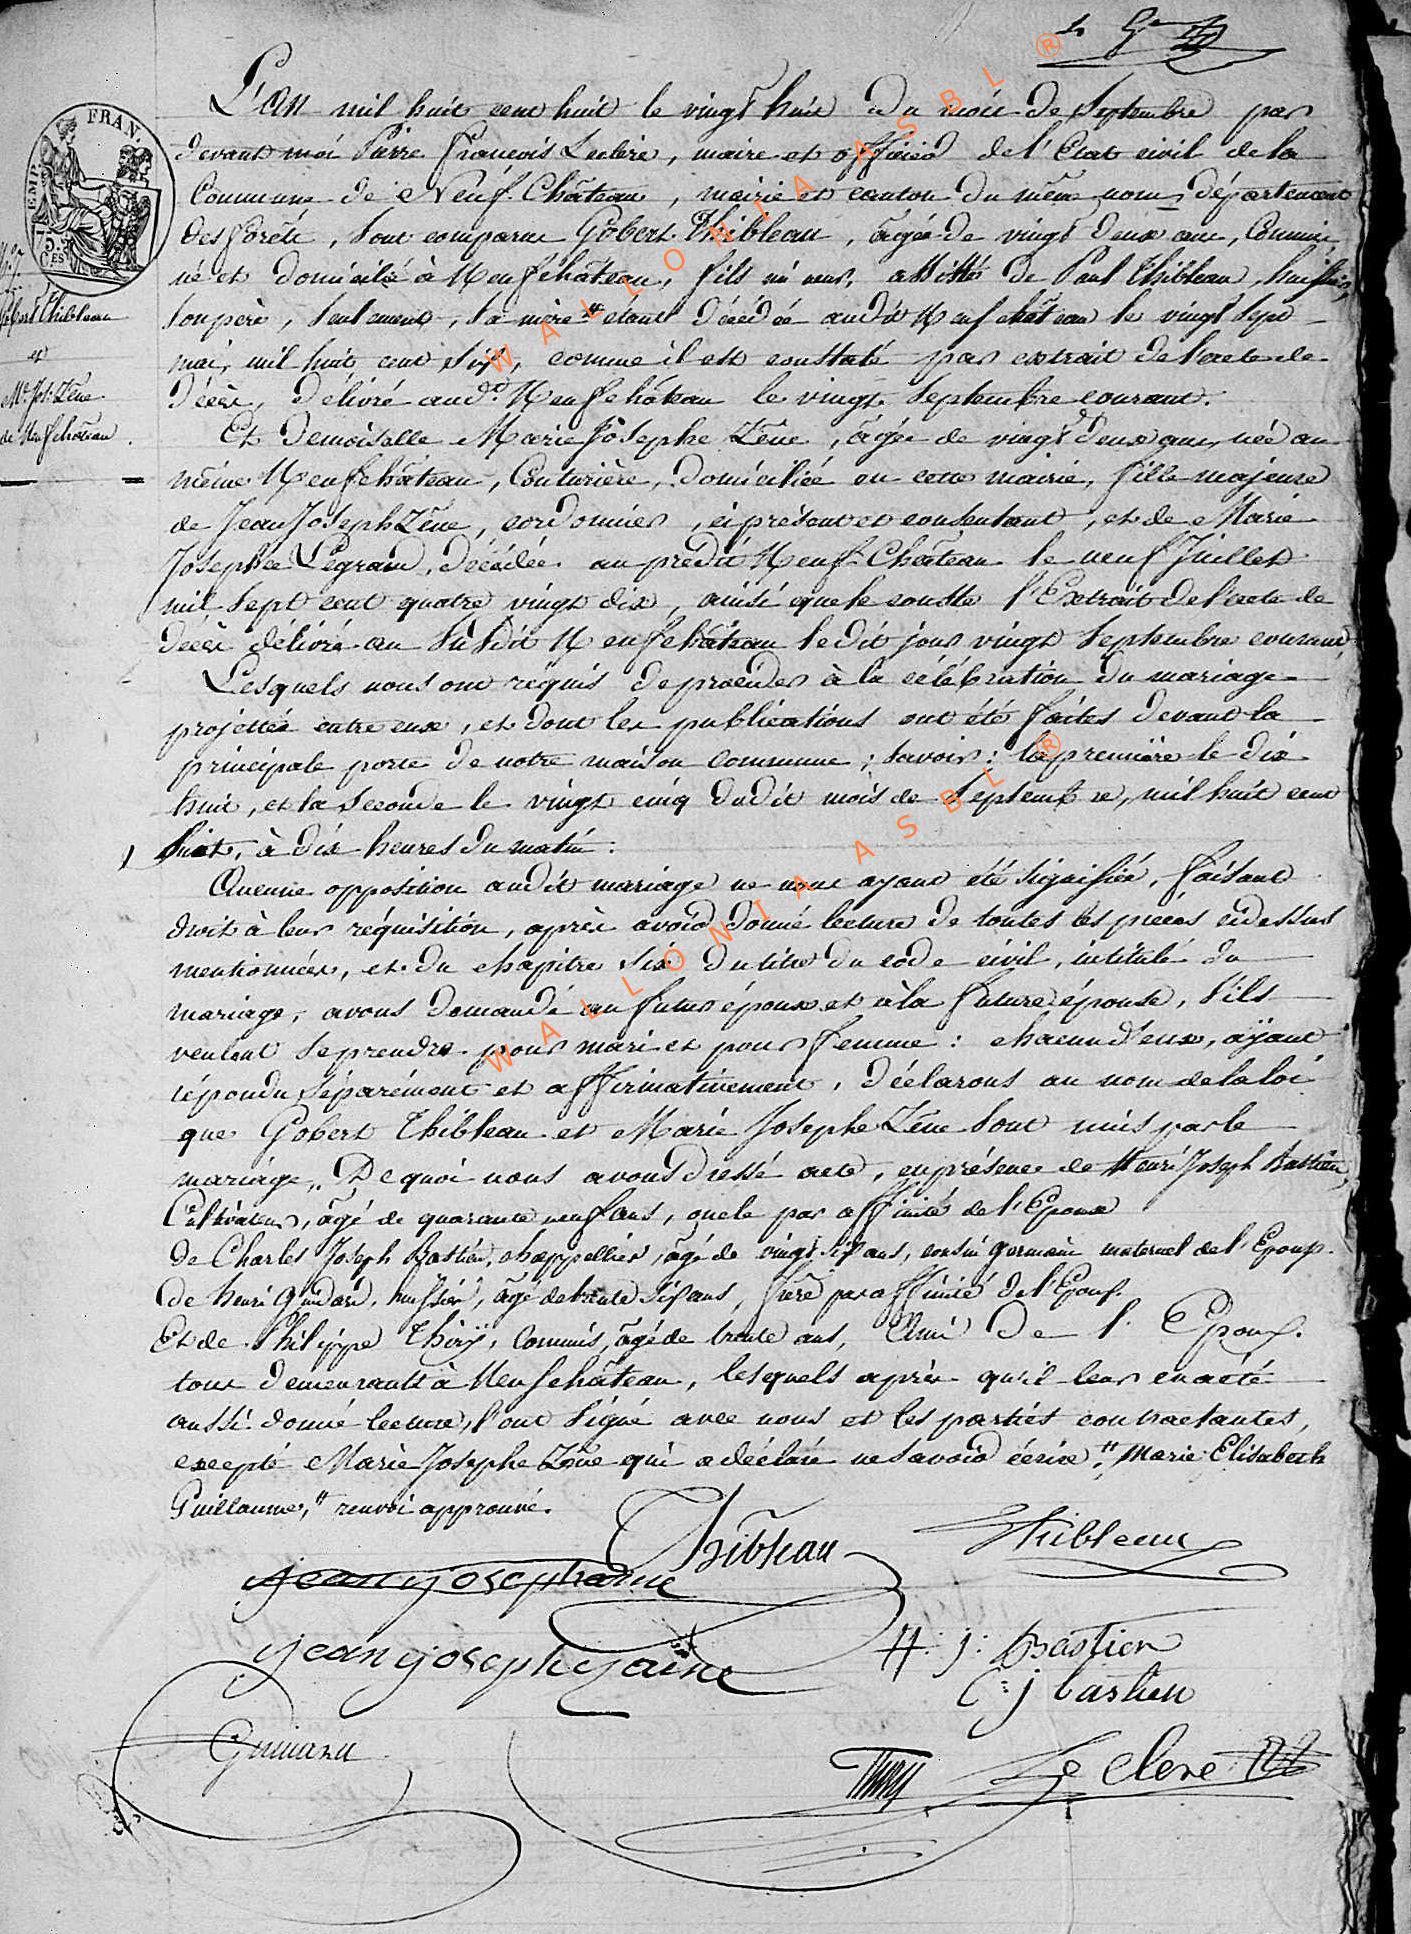 L'an mil huit cent huit le vingt huit du mois de Septembre par
devant moi Pierre François Leclere, maire et officier de l'Etat civil de la
Commune de Neuf-Château, mairie et canton du même nom, département
des forêts, sont comparus Gobert Thibleau, âgé de vingt deux ans, Commis,
né et domicilié à Neufchâteau, fils mineur, assisté de Paul Thibleau, huissier,
son père, seulement, sa mère # étant décédée audit Neufchâteau le vingt sept
mai, mil huit cent six, comme il est constaté par extrait de l'acte de
décès, délivré aud.t Neufchâteau le vingt Septembre courant.
Et Demoiselle Marie Josephe Zène, âgée de vingt deux ans, née au
même Neufchâteau, Couturière, domiciliée en cette mairie, fille majeure
de Jean Joseph Zène, cordonnier, ci présent et consentant, et de Marie
Josephe Legrand, décédée au predit Neuf-Château le neuf Juillet
mil sept cent quatre vingt dix, ainsi que le constte l'Extrait de l'acte de
décès délivré au susdit Neufchâteau le dit jour vingt Septembre courant
Lesquels nous ont réquis de procéder à la célébration du mariage
projetté entre eux, et dont les publications ont été faites devant la
principale porte de notre maison commune ; savoir : la première le dix
huit, et la seconde le vingt cinq dudit mois de Septembre, mil huit cent
huit, à dix heures du matin :
Aucune opposition audit mariage ne nous ayant été signifiée, faisant
droit à leur réquisition, après avoir donné lecture de toutes les pièces cidessus
mentionnées, et du chapitre six du titre du code civil, intitulé du
mariage, avons demandé au futur époux et à la future épouse, s'ils
veulent se prendre pour mari et pour femme : chacun d'eux, ayant
répondu séparément et affirmativement, déclarons au nom de la loi
que Gobert Thibleau et Marie Josephe Zène sont unis par le
mariage, De quoi nous avons dressé acte, en présence de Henri Joseph Bastien,
Cultivateur, âgé de quarante neuf ans, oncle par affinité de l'Epoux
de Charles Joseph Bastien, chappellier, âgé de vingt six ans, cousin germain maternel de l'Epoux.
de henri Guinard, huissier, âgé de trente six ans, frere par affinité de l'Epoux.
Et de Philippe Thiry, Commis, âgé de trente ans, Ami de l'Epoux.
tous demeurants à Neufchâteau, lesquels après qu'il leur en a été
aussi donné lecture, l'ont signé avec nous et les parties contractantes,
excepté Marie Josephe Zène qui a déclaré ne savoir écrire. # Marie Elisabeth
Guillaume, # renvoi approuvé.
Thibleau
Thibleau
jean joseph zaine
H: j: Bastien
C: j bastien
Guinard
Thiry
Leclere
FRAN.
EMP.
75
CES
Gobert Thibleau
et
Me Jos. Zène
de Neufchâteau.
WALLONIA ASBL ®
WALLONIA ASBL ®